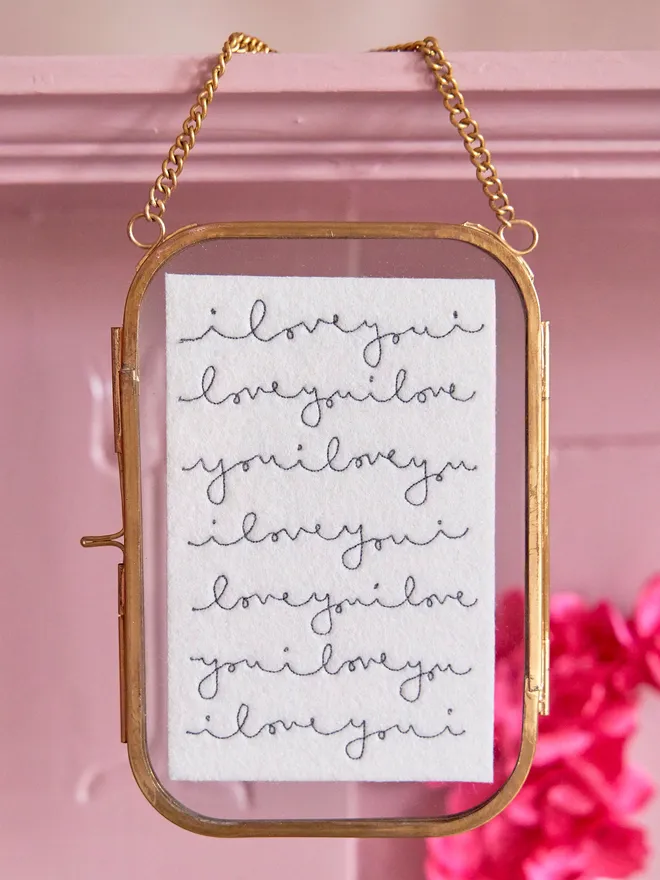 i love you i
love you i love
you i love you
i love you i
love you i love
you i love you
i love you i